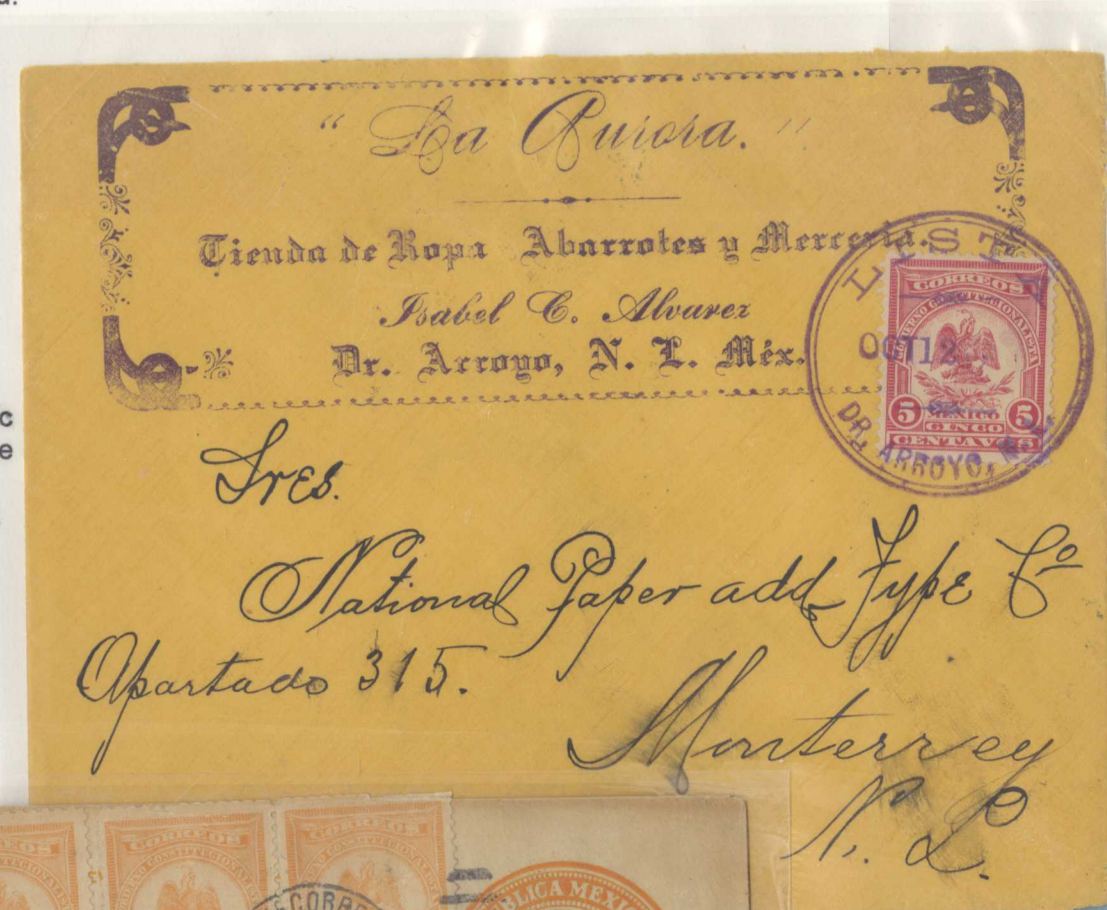 " La Aurora. "
Tienda de Ropa Abarrotes y Mercería.
Isabel C. Alvarez
Dr. Arroyo, N. L. Méx.
LISTA
OCT 12
DR. ARROYO, N. L.
CORREOS
GOBIERNO CONSTITUCIONALISTA
5 MEXICO 5
CINCO
CENTAVOS
c
e
Sres.
National Paper add Type Co
Apartado 315.
Monterrey
N. L.
CORREOS
CORREOS CORREOS
GOBIERNO CONSTITUCIONALISTA
CORRE
BLICA MEXI